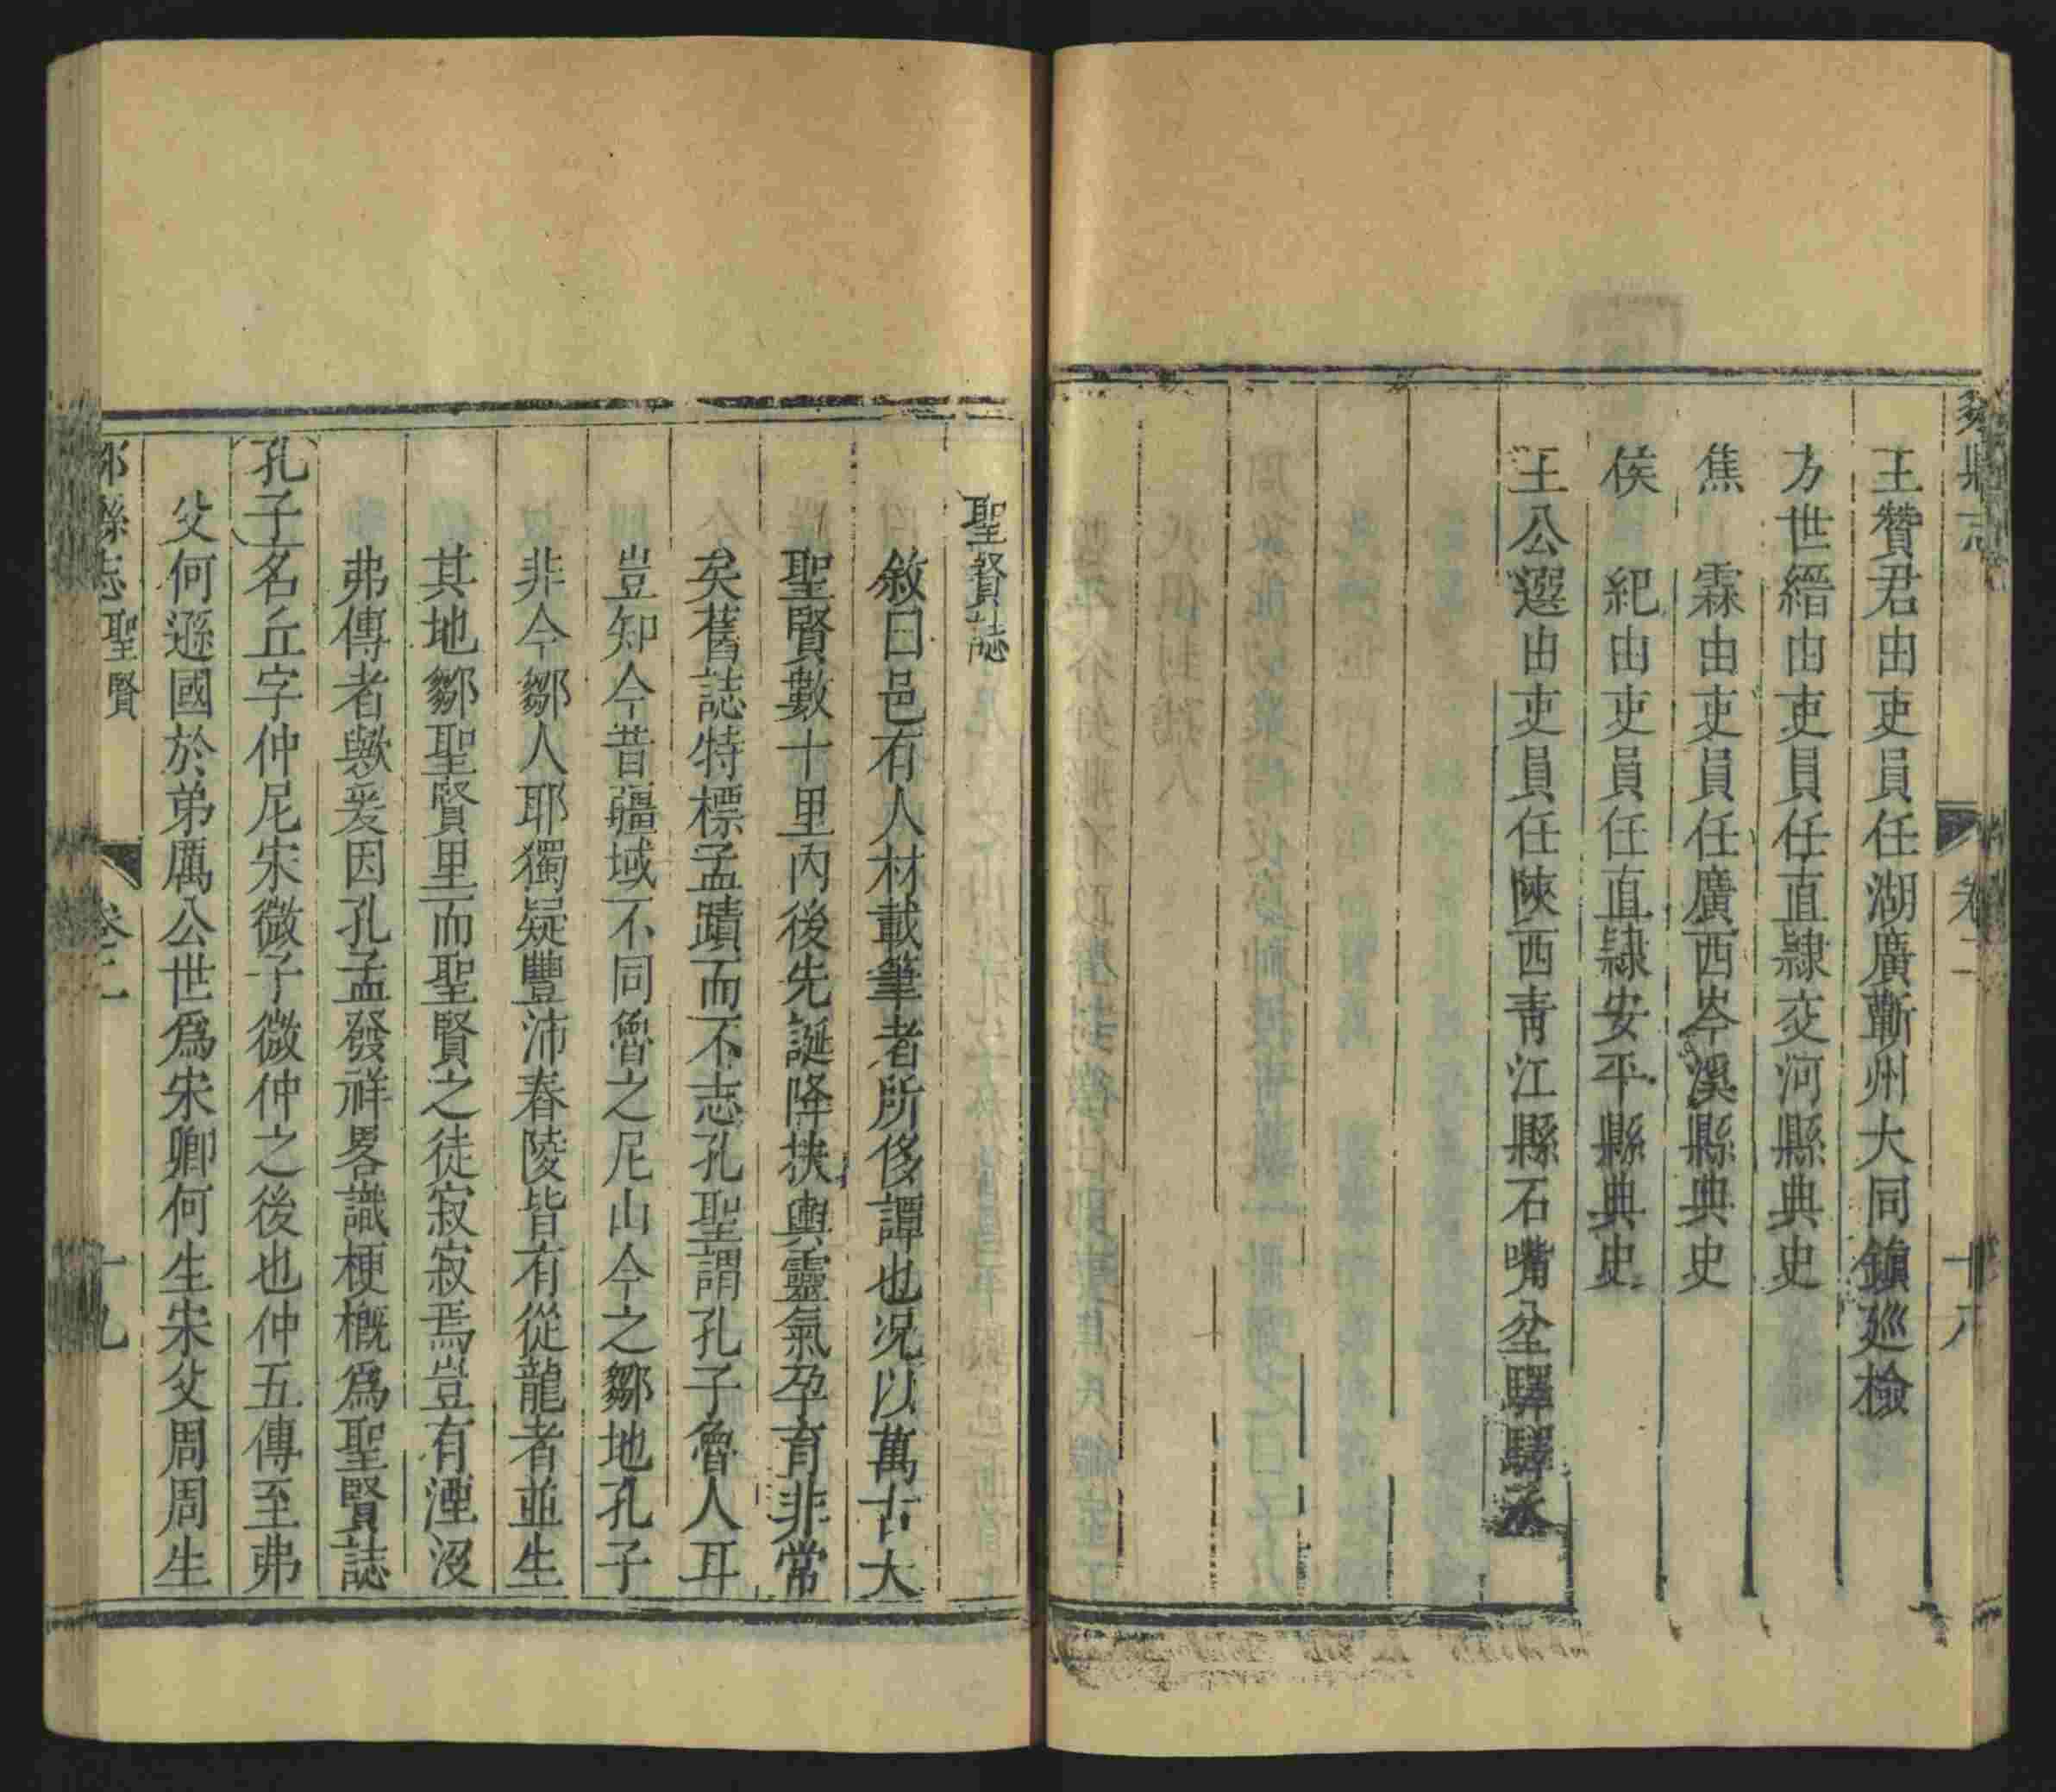 縣志
卷二
十八
王贊君由吏員任湖廣蘄州大同鎮廵檢
方世縉由吏員任直隷交河縣典史
焦　霖由吏員任廣西岑溪縣典史
侯　紀由吏員任直隷安平縣典史
王公選由吏員任陝西靑江縣石嘴坌驛驛丞
聖賢誌
敘曰邑有人材載筆者所侈譚也况以萬古大
聖賢數十里內後先誕降扶輿靈氣孕育非常
矣舊誌特標孟蹟而不志孔聖謂孔子魯人耳
豈知今昔疆域不同魯之尼山今之鄒地孔子
非今鄒人耶獨疑豐沛舂陵皆有從龍者並生
其地鄒聖賢里而聖賢之徒寂寂焉豈有湮沒
弗傳者歟爰因孔孟發祥畧識梗概爲聖賢誌
孔子名丘字仲尼宋微子微仲之後也仲五傳至弗
父何遜國於弟厲公世爲宋卿何生宋父周周生
縣志聖賢
卷二
十九